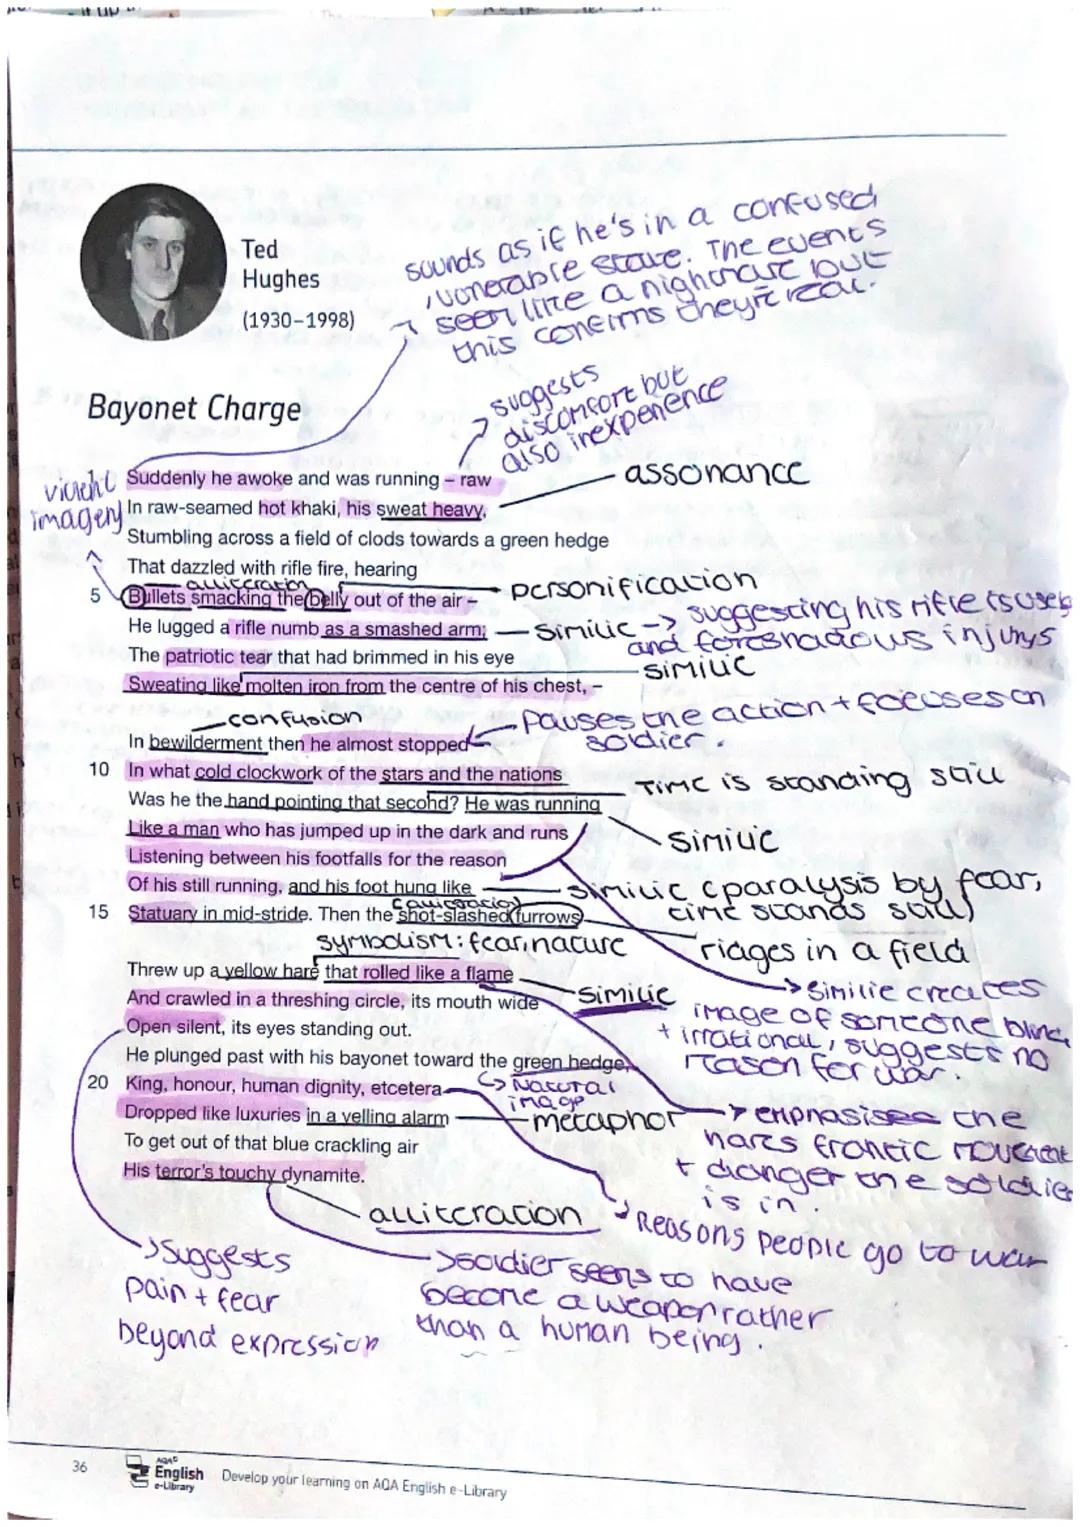 Ted
Hughes
(1930–1998)
sounds as if he's in a confused
, vunerable state. The events
seem like a nightmare but
this confirms they're real.
Bayonet Charge
suggests
discomfort but
also inexperience
assonance
violent
imagery
1 Suddenly he awoke and was running – raw
In raw-seamed hot khaki, his sweat heavy,
Stumbling across a field of clods towards a green hedge
That dazzled with rifle fire, hearing
alliteration
personification
5 Bullets smacking the belly out of the air –
He lugged a rifle numb as a smashed arm;
similie -> suggesting his rifle is useless
and foreshadows injurys
The patriotic tear that had brimmed in his eye
similie
Sweating like molten iron from the centre of his chest, –
confusion
pauses the action + focuses on
soldier.
In bewilderment then he almost stopped
10 In what cold clockwork of the stars and the nations
Time is standing still
Was he the hand pointing that second? He was running
similie
Like a man who has jumped up in the dark and runs
Listening between his footfalls for the reason
Of his still running, and his foot hung like
similie (paralysis by fear,
time stands still)
15 Statuary in mid-stride. Then the shot-slashed furrows
ridges in a field
symbolism: fear, nature
Threw up a yellow hare that rolled like a flame
similie
And crawled in a threshing circle, its mouth wide
Open silent, its eyes standing out.
-> similie creates
image of someone blind
+ irrational, suggests no
reason for war.
He plunged past with his bayonet toward the green hedge,
Natural
image
20 King, honour, human dignity, etcetera
Dropped like luxuries in a yelling alarm
metaphor
-> emphasises the
hares frantic movement
+ danger the soldier
is in.
To get out of that blue crackling air
His terror's touchy dynamite.
alliteration
Reasons people go to war
-> suggests
pain + fear
beyond expression
-> soldier seems to have
become a weapon rather
than a human being.
36
AQA
English
e-Library
Develop your learning on AQA English e-Library